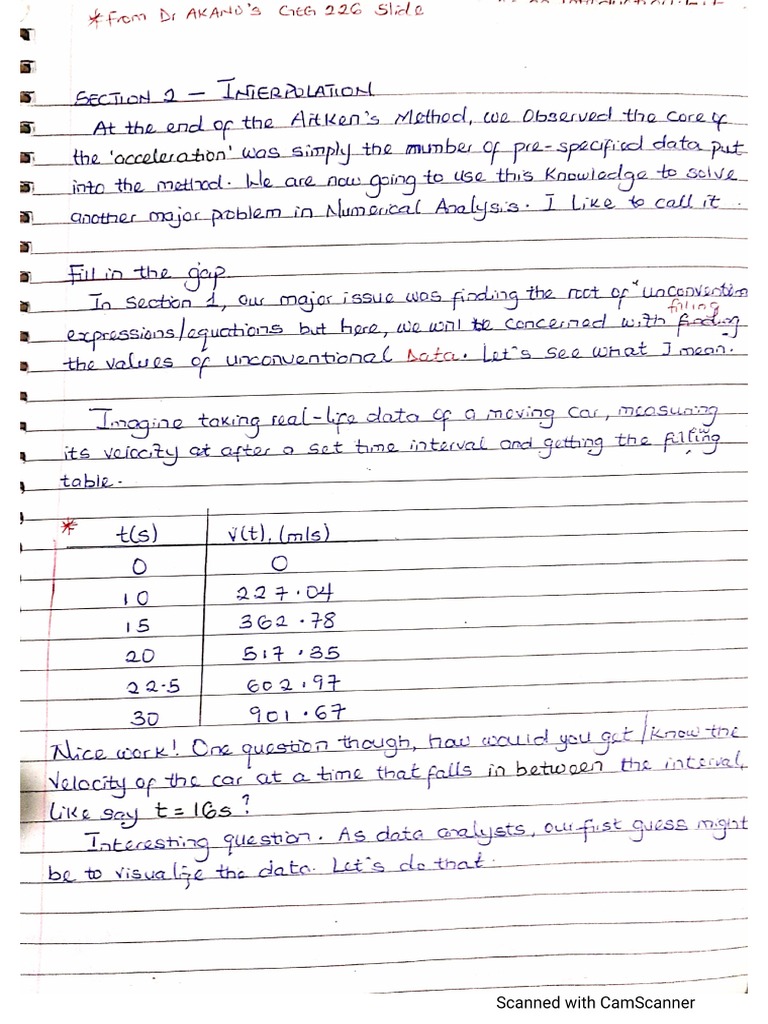 *From Dr AKANO'S GEG 226 Slide
SECTION 2 – INTERPOLATION
At the end of the Aitken's Method, we observed the core of
the 'acceleration' was simply the number of pre-specified data put
into the method. We are now going to use this knowledge to solve
another major problem in Numerical Analysis. I like to call it.
Fill in the gap
In section 1, our major issue was finding the root of "unconvention
filling
expressions/equations but here, we will be concerned with finding
the values of unconventional Data. Let's see what I mean.
Imagine taking real-life data of a moving car, measuring
its velocity at after a set time interval and getting the
table.
* t(s) v(t), (m/s)
0 0
10 227.04
15 362.78
20 517.35
22.5 602.97
30 901.67
Nice work! One question though, how would you get/know the
velocity of the car at a time that falls in between the interval,
like say t = 16s?
Interesting question. As data analysts, our first guess might
be to visualize the data. Let's do that.
Scanned with CamScanner